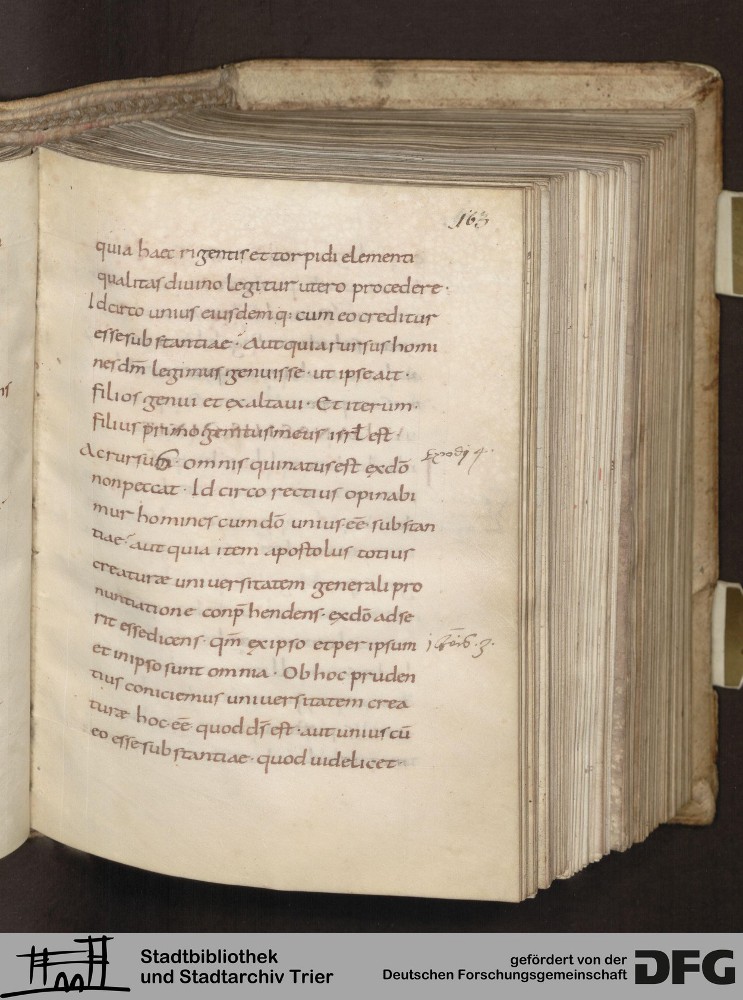 163
quia haec rigentis et torpidi elementi
qualitas diuino legitur utero procedere·
Idcirco unius eiusdemq: cum eo creditur
esse substantiae· Aut quia rursus homi
nes dm̄ legimus genuisse· ut ipse ait·
filios genui et exaltaui· Et iterum·
filius primogenitus meus isrl̄ est·
Ac rursus· omnis qui natus est ex dō
non peccat· Idcirco rectius opinabi
mur homines cum dō unius eē substan
tiae· aut quia item apostolus totius
creaturæ uniuersitatem generali pro
nuntiatione conp̄hendens· ex dō adse
rit esse dicens· qm̄ ex ipso et per ipsum
et in ipso sunt omnia· Ob hoc pruden
tius coniciemus uniuersitatem crea
turæ hoc eē quod ds̄ est· aut unius cū
eo esse substantiae· quod uidelicet·
Exodj 4·
Stadtbibliothek
und Stadtarchiv Trier
gefördert von der
Deutschen Forschungsgemeinschaft
DFG